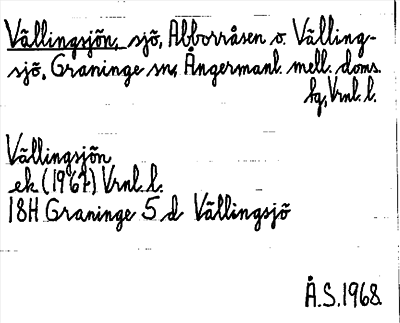 Vällingsjön, sjö, Abborråsen o. Välling-
sjö, Graninge sn, Ångermanl. mell. doms.
hg, Vrnl. l.
Vällingsjön
ek (1967) Vrnl. l.
18H Graninge 5 d Vällingsjö
Å.S. 1968.